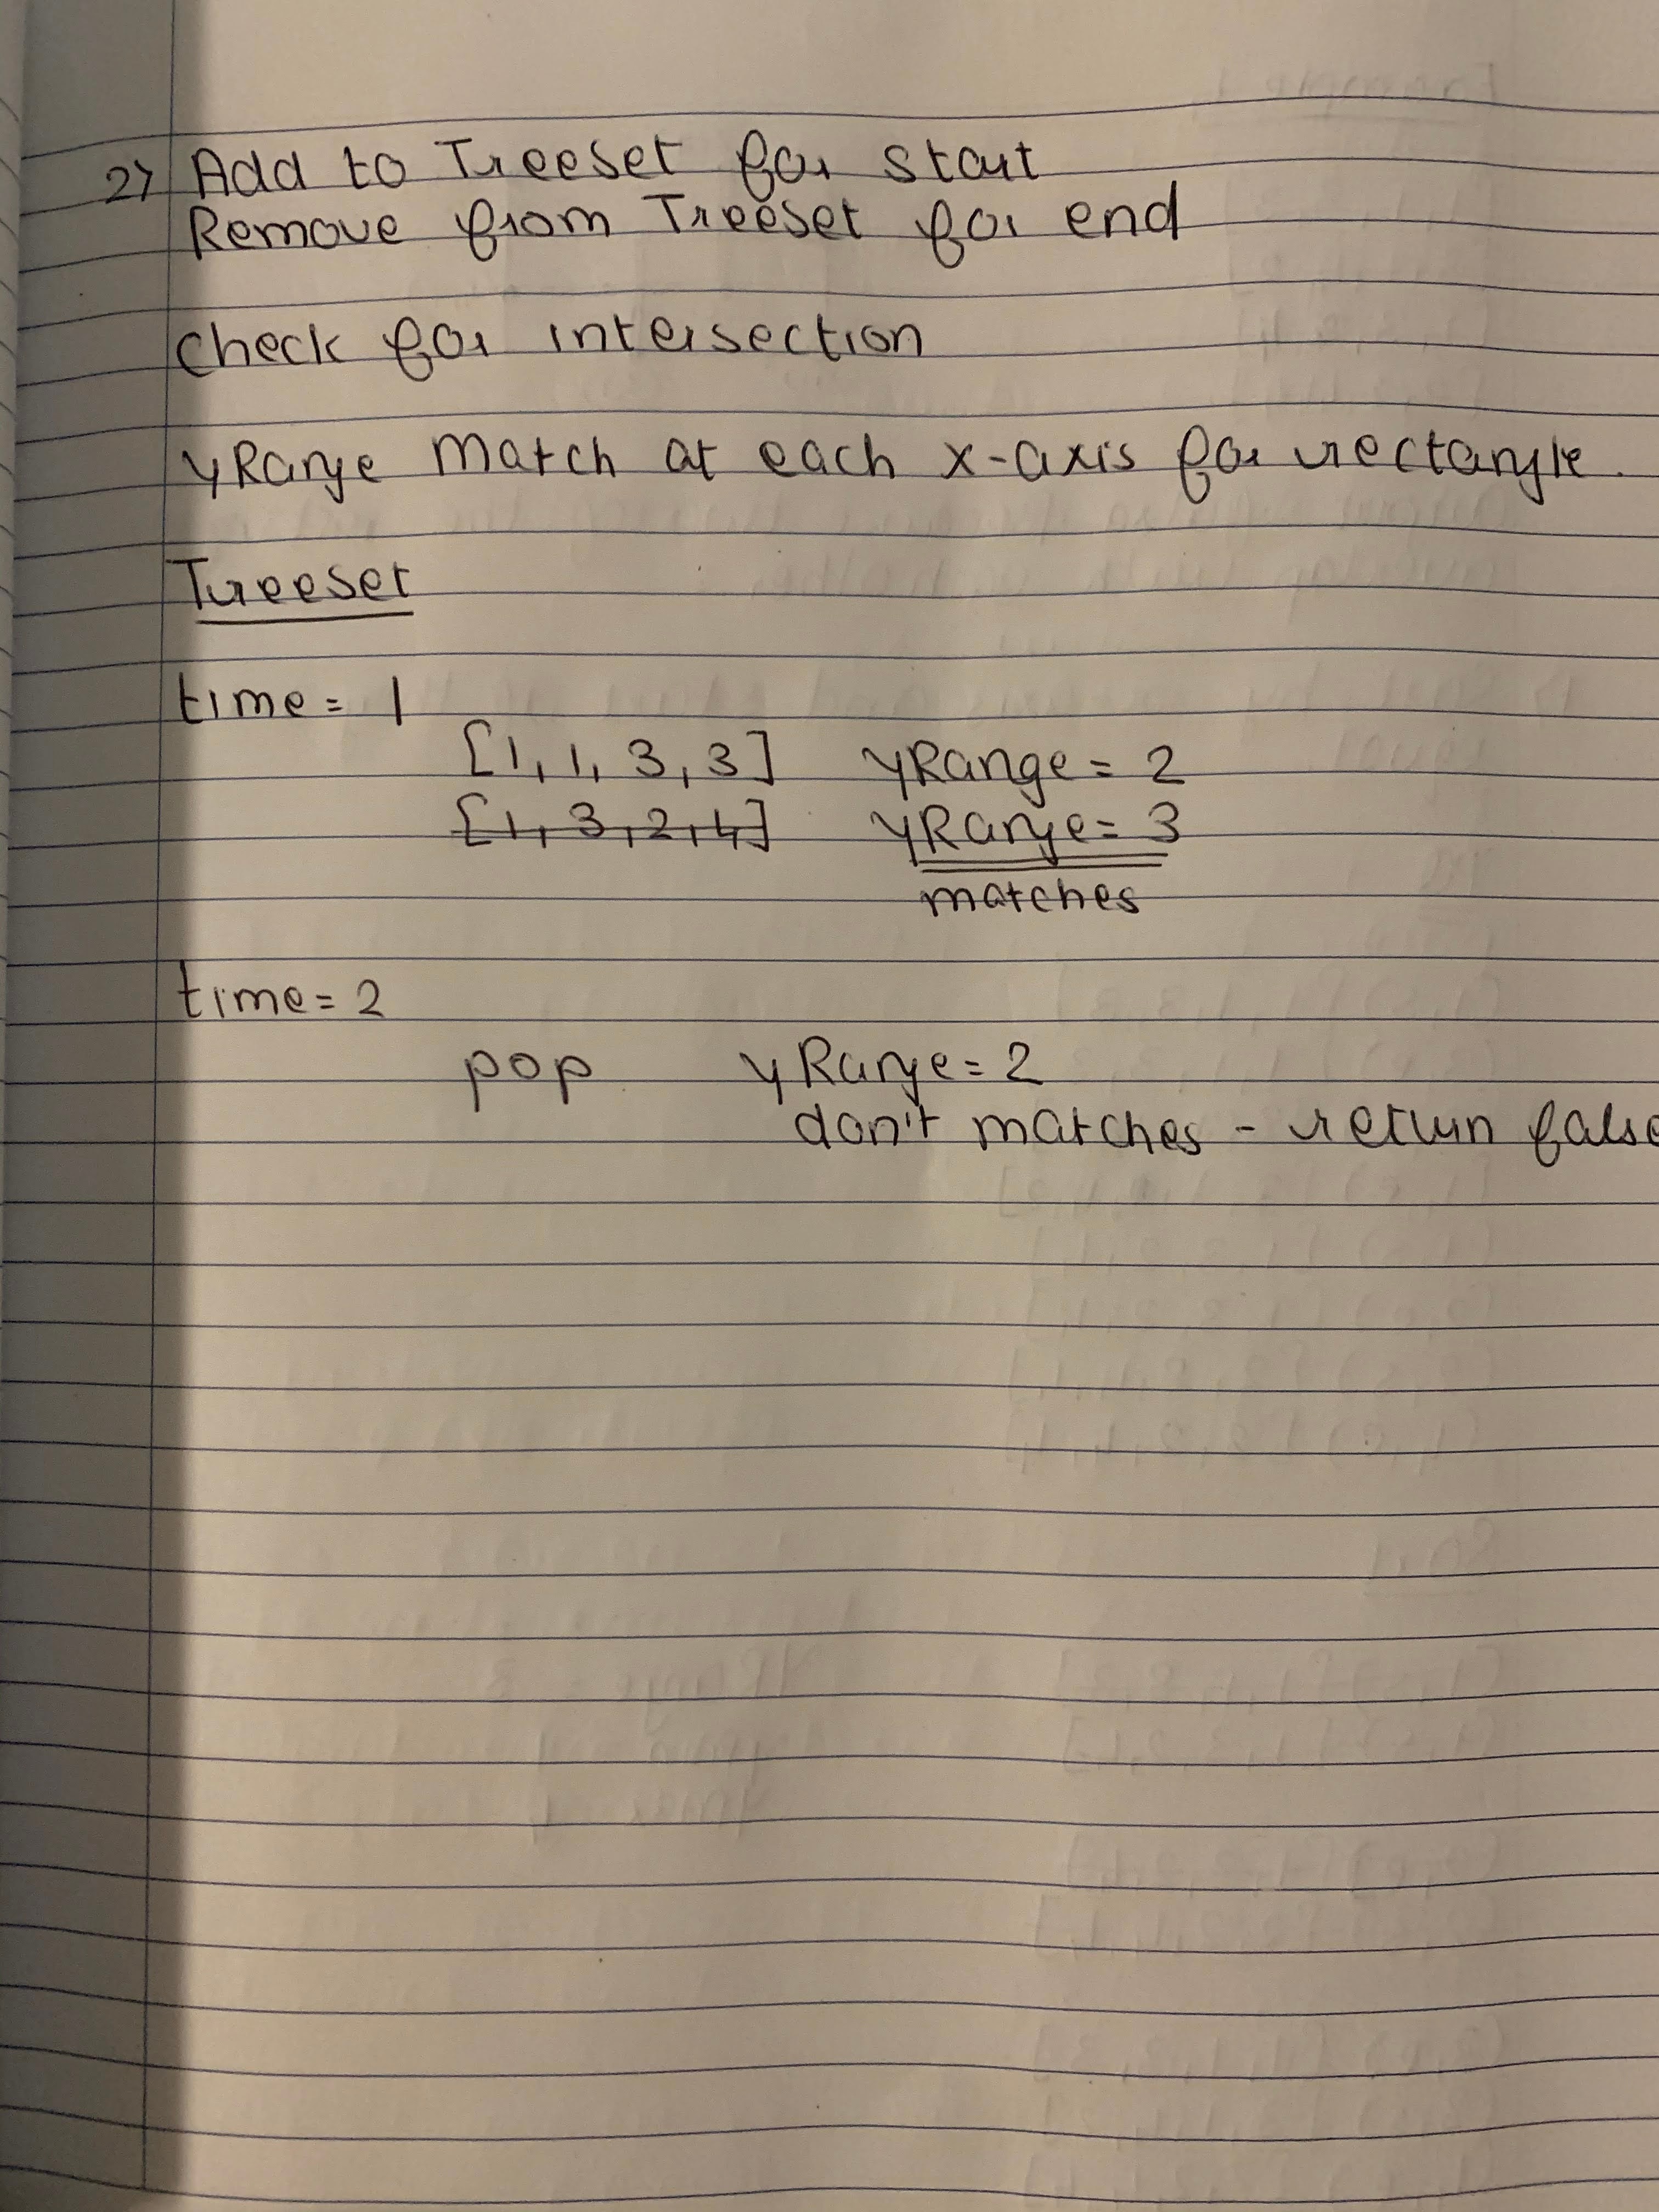 2) Add to Treeset for start
Remove from Treeset for end
Check for intersection
yRange match at each x-axis for rectangle.
Treeset
time = 1
[1, 1, 3, 3] yRange = 2
[1, 3, 2, 4] yRange = 3
matches
time = 2
pop yRange = 2
don't matches - return false